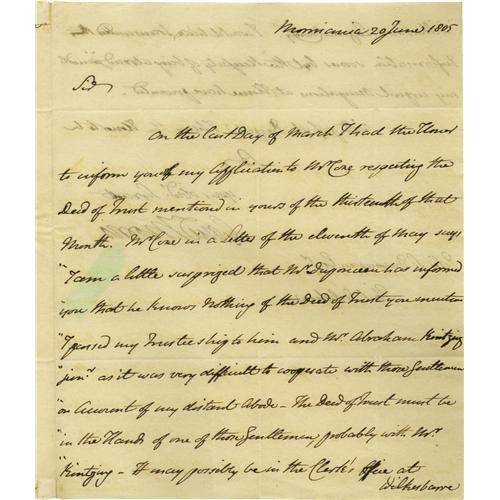 Morrisania 20 June 1805
Sir
On the last Day of March I had the Honor
to inform you of my Application to Mr. Coxe respecting the
Deed of Trust mentioned in yours of the thirteenth of that
Month. Mr. Coxe in a Letter of the eleventh of May says
"I am a little surprized that Mr. Duponceau has informed
"you that he knows nothing of the Deed of Trust you mention
"I passed my Trusteeship to him and Mr. Abraham Kintzing
"junr. as it was very difficult to cooperate with those Gentlemen
"on Account of my distant Abode – The Deed of Trust must be
"in the Hands of one of those Gentlemen, probably with Mr.
"Kintzing – It may possibly be in the Clerk's office at
Wilkesbarre